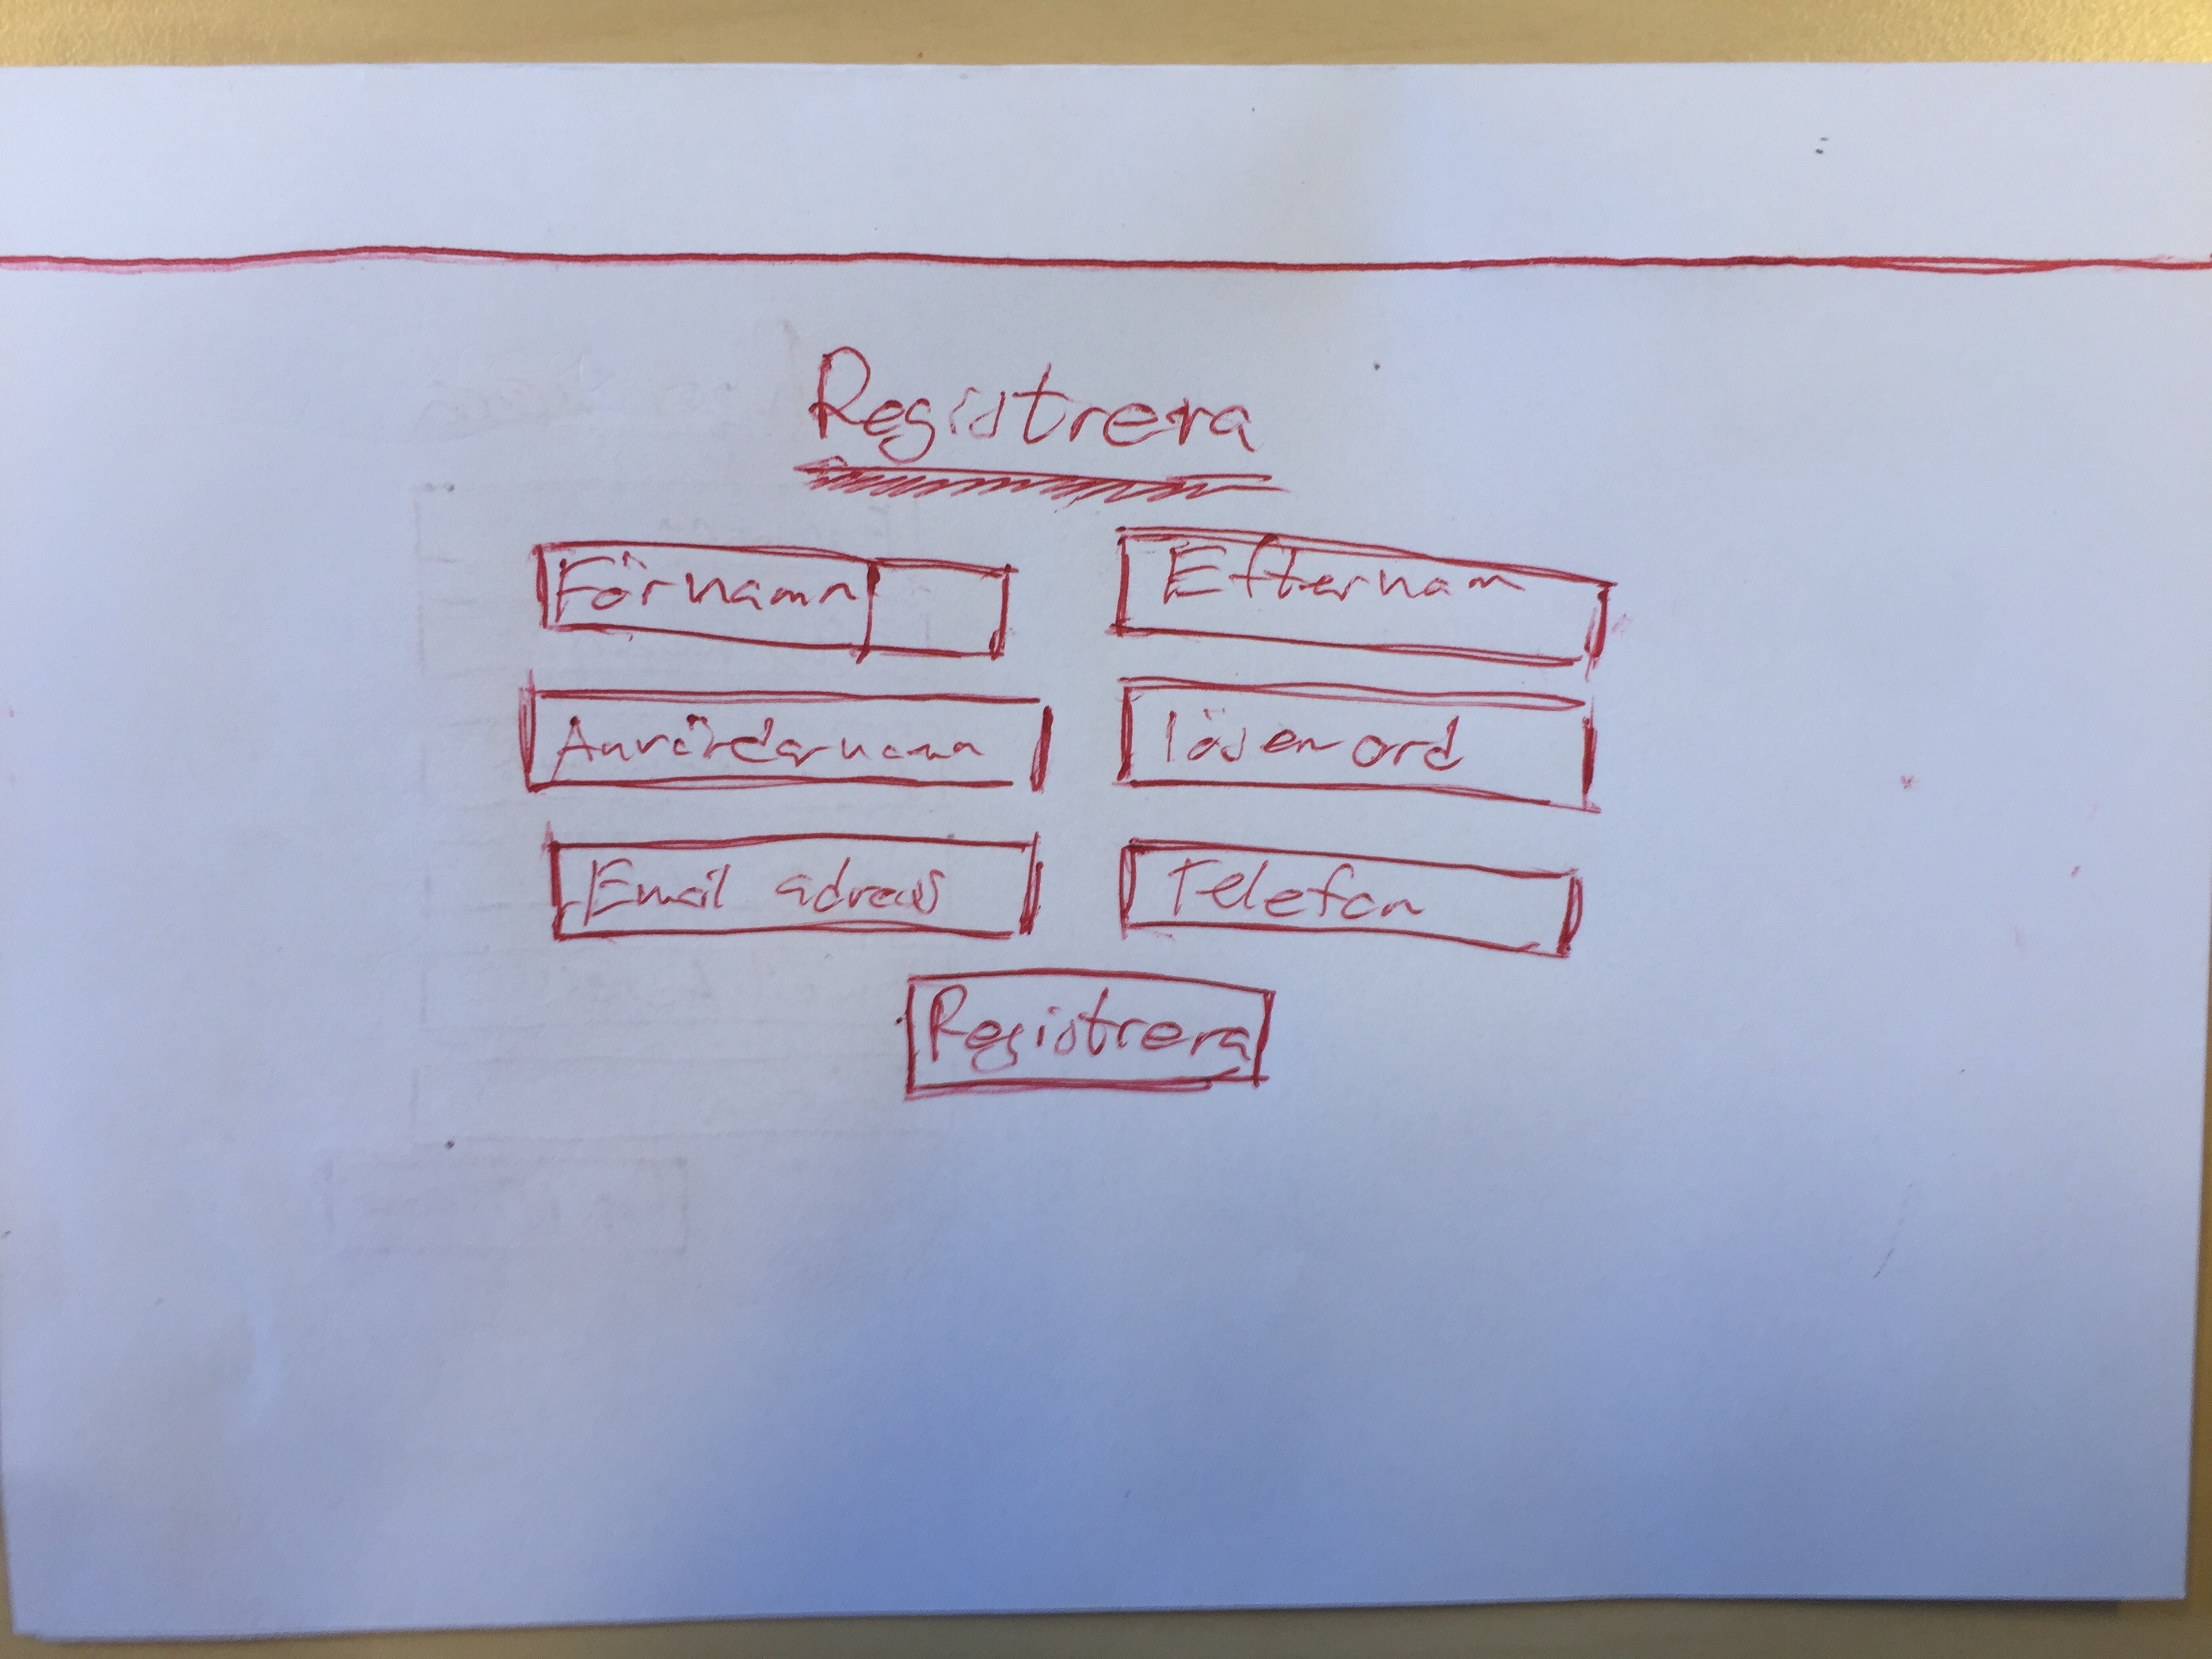 Registrera
Förnamn Efternam
Användarnamn lösenord
Email adress Telefon
Registrera